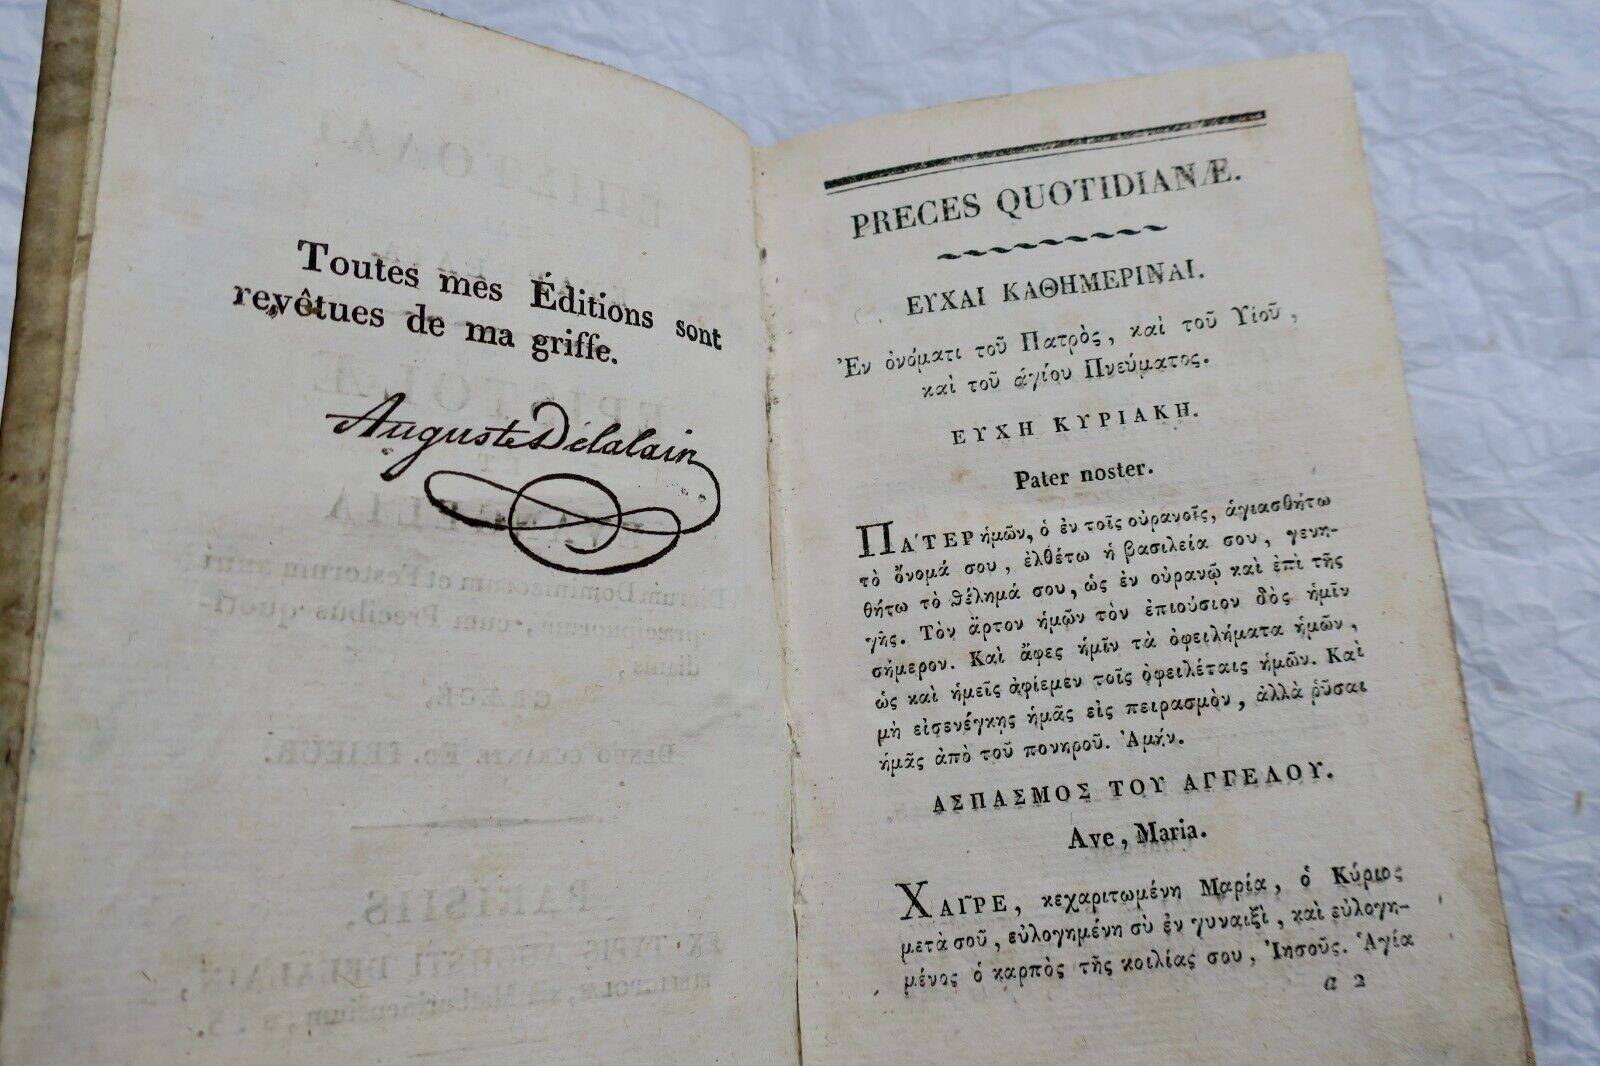 Toutes mes Éditions sont
revêtues de ma griffe.
Auguste Delalain
PRECES QUOTIDIANÆ.
ΕΥΧΑΙ ΚΑΘΗΜΕΡΙΝΑΙ.
Ἐν ὀνόματι τοῦ Πατρὸς, καὶ τοῦ Υἱοῦ,
καὶ τοῦ ἁγίου Πνεύματος.
ΕΥΧΗ ΚΥΡΙΑΚΗ.
Pater noster.
ΠΑ'ΤΕΡ ἡμῶν, ὁ ἐν τοῖς οὐρανοῖς, ἁγιασθήτω
τὸ ὄνομά σου, ἐλθέτω ἡ βασιλεία σου, γενη-
θήτω τὸ θέλημά σου, ὡς ἐν οὐρανῷ καὶ ἐπὶ τῆς
γῆς. Τὸν ἄρτον ἡμῶν τὸν ἐπιούσιον δὸς ἡμῖν
σήμερον. Καὶ ἄφες ἡμῖν τὰ ὀφειλήματα ἡμῶν,
ὡς καὶ ἡμεῖς ἀφίεμεν τοῖς ὀφειλέταις ἡμῶν. Καὶ
μὴ εἰσενέγκης ἡμᾶς εἰς πειρασμὸν, ἀλλὰ ῥῦσαι
ἡμᾶς ἀπὸ τοῦ πονηροῦ. Ἀμήν.
ΑΣΠΑΣΜΟΣ ΤΟΥ ΑΓΓΕΛΟΥ.
Ave, Maria.
ΧΑῖΡΕ, κεχαριτωμένη Μαρία, ὁ Κύριος
μετὰ σοῦ, εὐλογημένη σὺ ἐν γυναιξὶ, καὶ εὐλογη-
μένος ὁ καρπὸς τῆς κοιλίας σου, Ἰησοῦς. Ἁγία
a 2